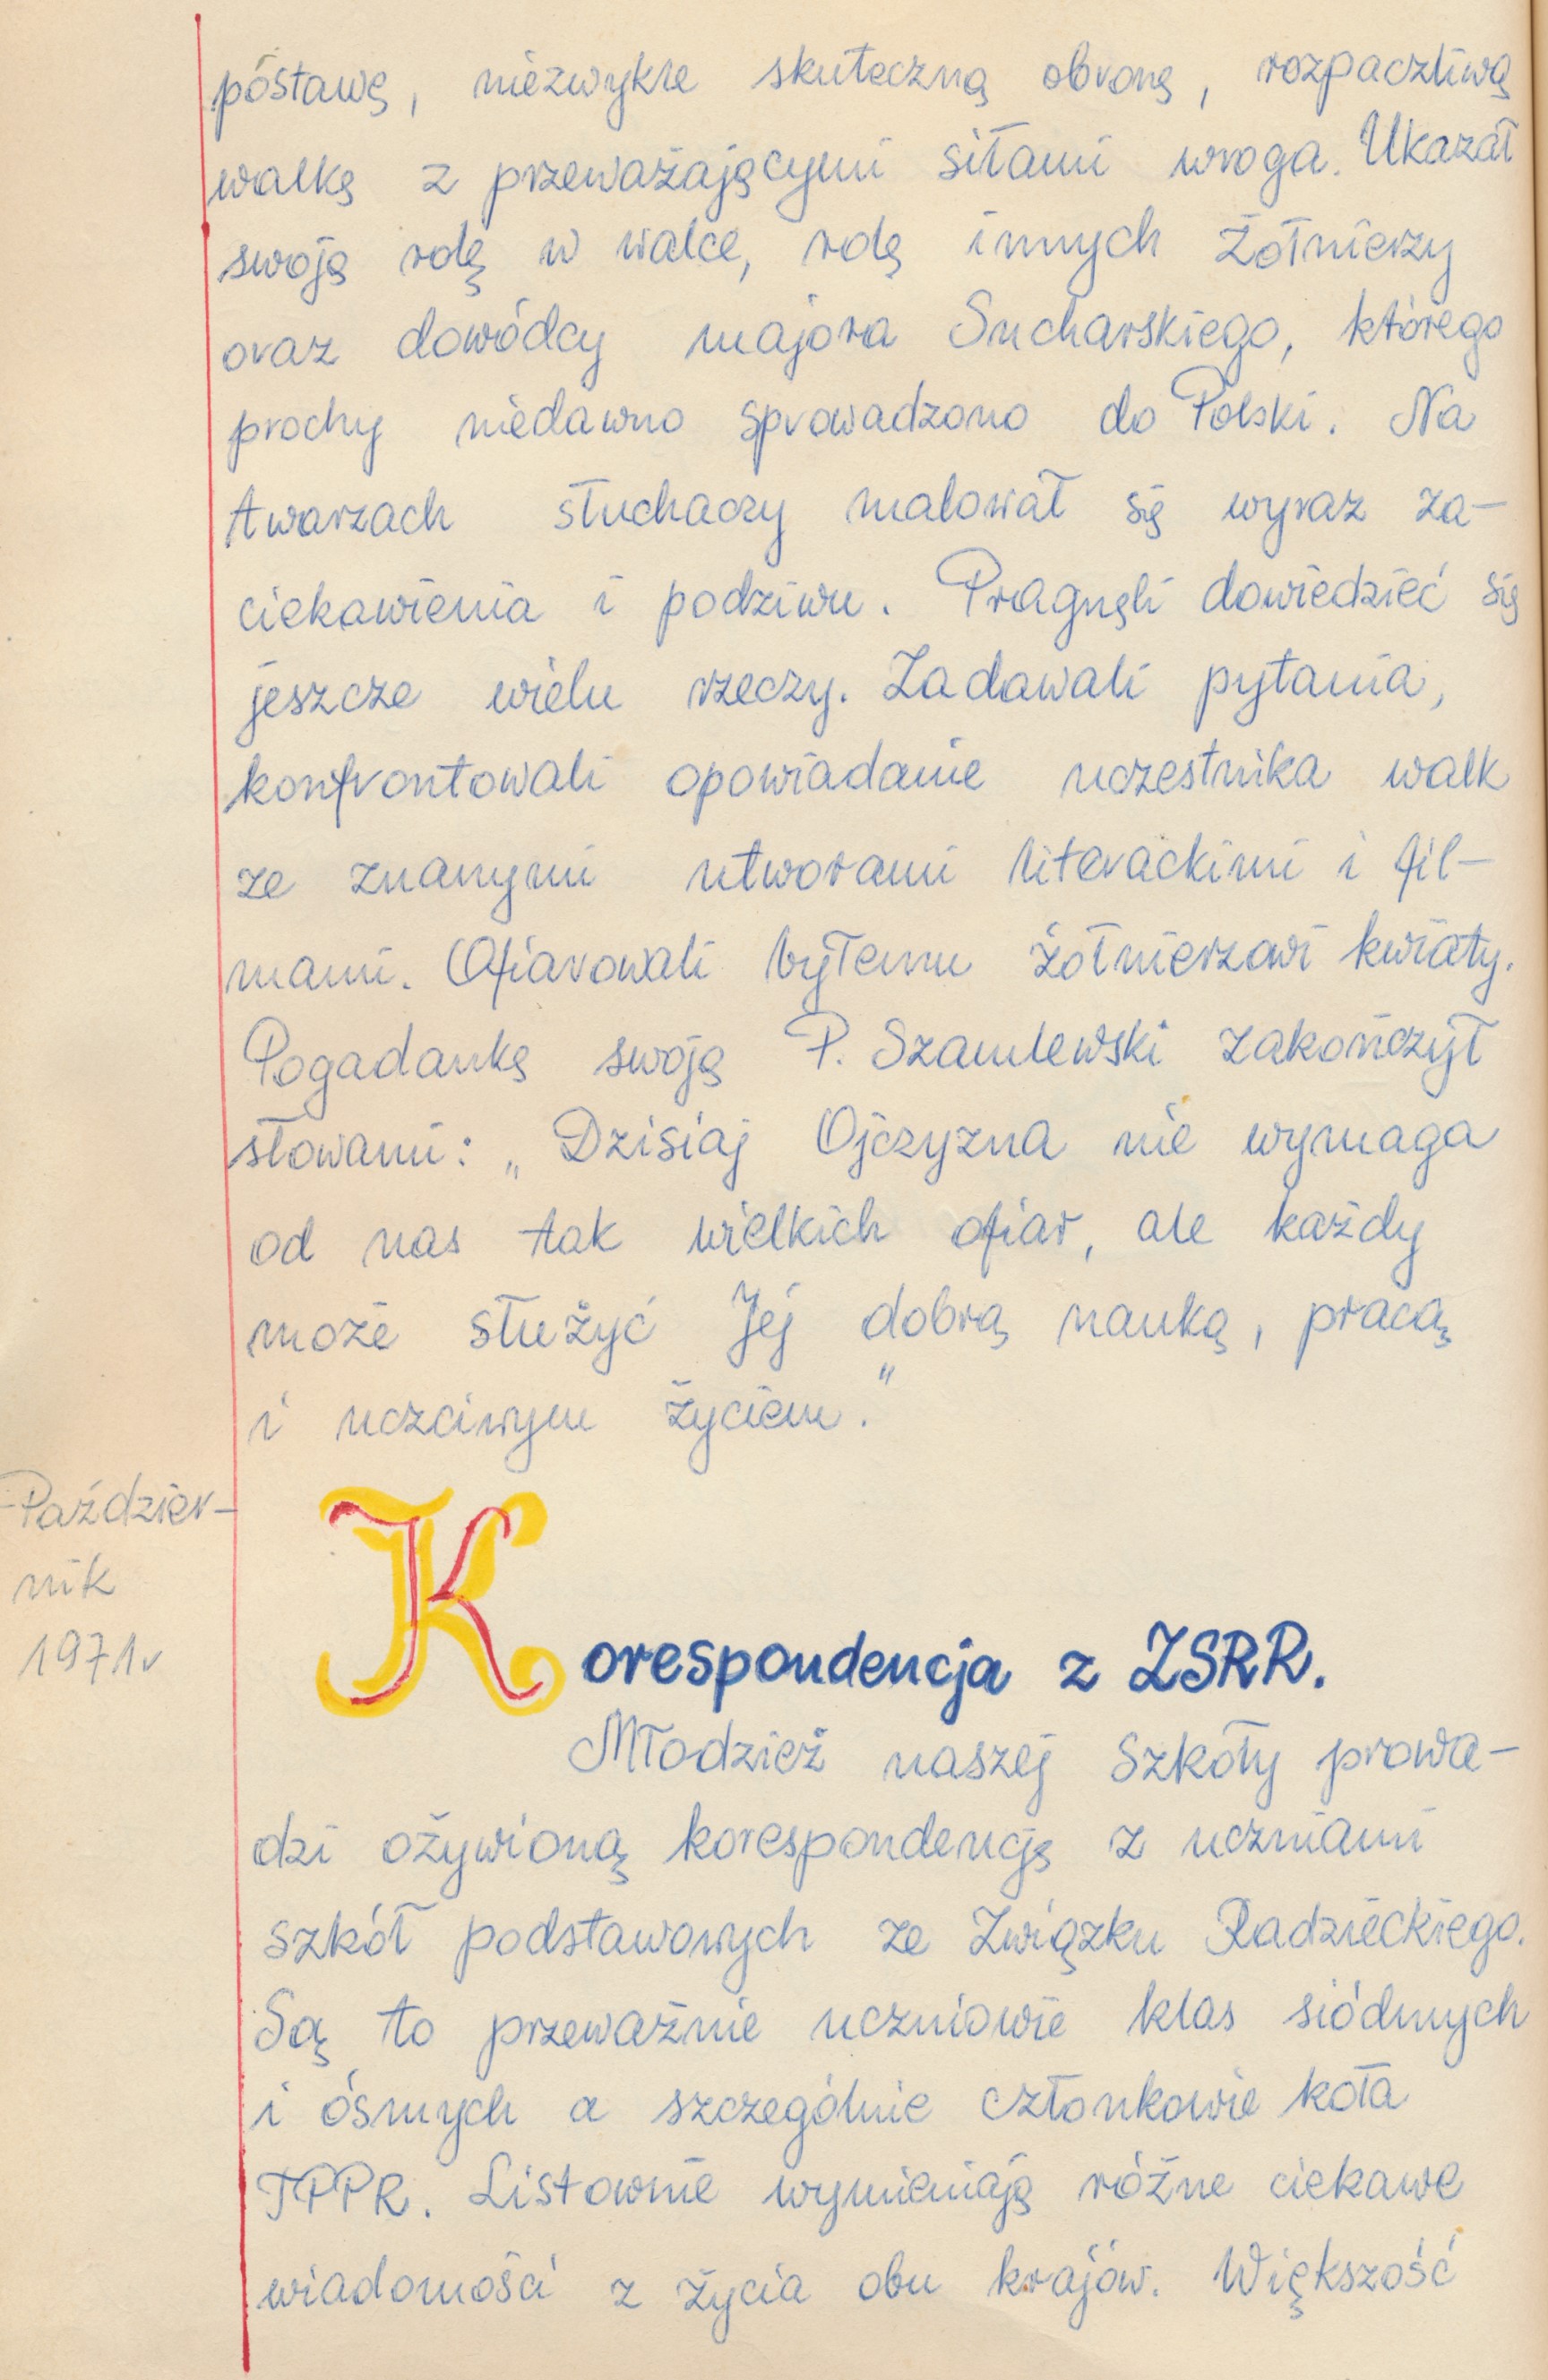 postawę, niezwykle skuteczną obronę, rozpaczliwą
walkę z przeważającymi siłami wroga. Ukazał
swoją rolę w walce, rolę innych żołnierzy
oraz dowódcy majora Sucharskiego, którego
prochy niedawno sprowadzono do Polski. Na
twarzach słuchaczy malował się wyraz za-
ciekawienia i podziwu. Pragnęli dowiedzieć się
jeszcze wielu rzeczy. Zadawali pytania,
konfrontowali opowiadanie uczestnika walk
ze znanymi utworami literackimi i fil-
mami. Ofiarowali byłemu żołnierzowi kwiaty.
Pogadankę swoją P. Szamlewski zakończył
słowami: „Dzisiaj Ojczyzna nie wymaga
od nas tak wielkich ofiar, ale każdy
może służyć Jej dobrą nauką, pracą
i uczciwym życiem."
Paździer-
nik
1971r
Korespondencja z ZSRR.
Młodzież naszej Szkoły prowa-
dzi ożywioną korespondencję z uczniami
szkół podstawowych ze Związku Radzieckiego.
Są to przeważnie uczniowie klas siódmych
i ósmych a szczególnie członkowie koła
TPPR. Listownie wymieniają różne ciekawe
wiadomości z życia obu krajów. Większość